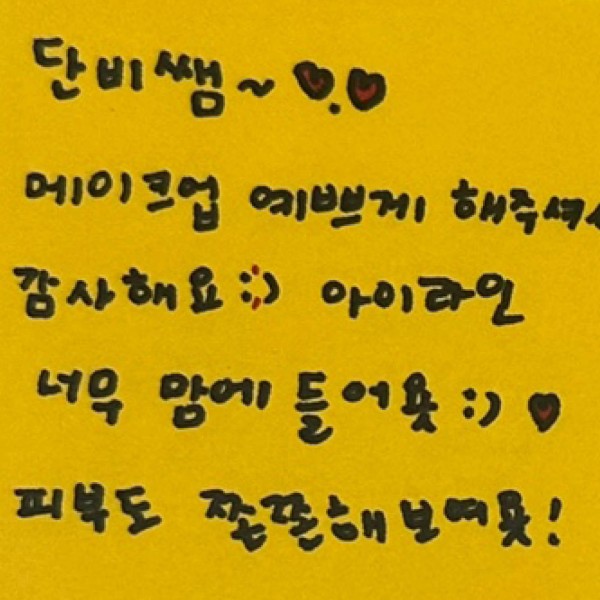 단비쌤~ ♥.♥
메이크업 예쁘게 해주셔서
감사해요:;) 아이라인
너무 맘에 들어욧 :) ♥
피부도 쫀쫀해보여욧!